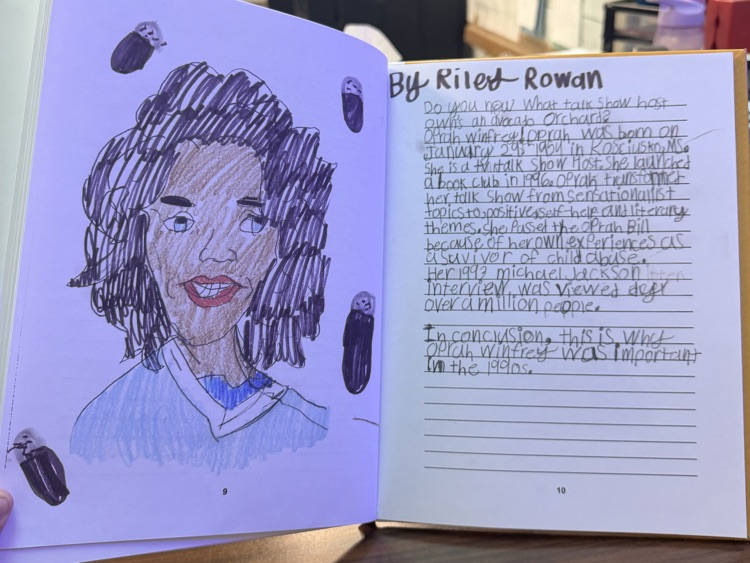 By Riley Rowan
Do you new what talk show host
owns an avocato orchard?
Oprah Winfrey! Oprah was born on
January 29th 1954 in Kosciusko, MS.
She is a tv talk show Host. She launched
a book club in 1996. Oprah transformed
her talk show from sensationalist
topics to positive, self help and literary
themes. She Passed the Oprah Bill
because of her own experiences as
a suvivor of child abuse.
Her 1993 michael Jackson
interview was viewed
over a million people.
In conclusion, this is why
Oprah Winfrey was important
in the 1990s.
9
10